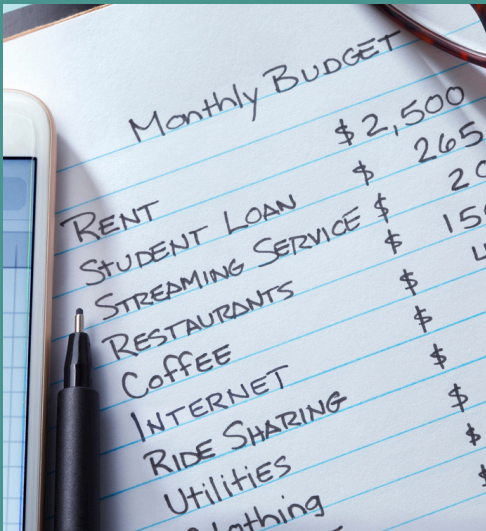 Monthly BUDGET
RENT $2,500
STUDENT LOAN $ 265
STREAMING SERVICE $ 20
RESTAURANTS $ 150
COFFEE $
INTERNET $
RIDE SHARING $
Utilities $
Clothing $